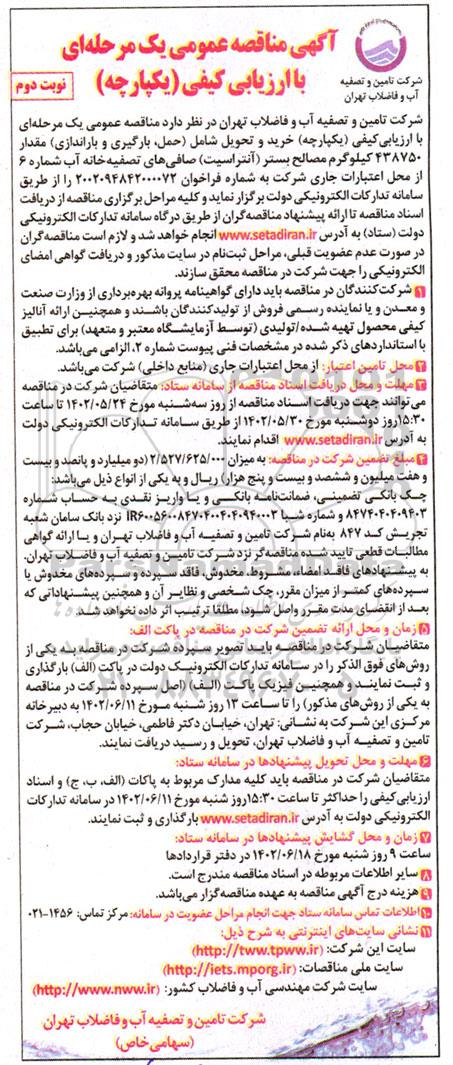 آگهی مناقصه عمومی یک مرحله‌ای
با ارزیابی کیفی (یکپارچه)
نوبت دوم
شرکت تامین و تصفیه
آب و فاضلاب تهران
شرکت تامین و تصفیه آب و فاضلاب تهران در نظر دارد مناقصه عمومی یک مرحله‌ای
با ارزیابی کیفی (یکپارچه) خرید و تحویل شامل (حمل، بارگیری و باراندازی) مقدار
۴۳۸۷۵۰ کیلوگرم مصالح بستر (آنتراسیت) صافی‌های تصفیه‌خانه آب شماره ۶
از محل اعتبارات جاری شرکت به شماره فراخوان ۲۰۰۲۰۹۴۸۴۲۰۰۰۰۷۲ را از طریق
سامانه تدارکات الکترونیکی دولت برگزار نماید و کلیه مراحل برگزاری مناقصه از دریافت
اسناد مناقصه تا ارائه پیشنهاد مناقصه‌گران از طریق درگاه سامانه تدارکات الکترونیکی
دولت (ستاد) به آدرس www.setadiran.ir انجام خواهد شد و لازم است مناقصه‌گران
در صورت عدم عضویت قبلی، مراحل ثبت‌نام در سایت مذکور و دریافت گواهی امضای
الکترونیکی را جهت شرکت در مناقصه محقق سازند.
۱ شرکت‌کنندگان در مناقصه باید دارای گواهینامه پروانه بهره‌برداری از وزارت صنعت
و معدن و یا نماینده رسمی فروش از تولیدکنندگان باشند و همچنین ارائه آنالیز
کیفی محصول تهیه شده/تولیدی (توسط آزمایشگاه معتبر و متعهد) برای تطبیق
با استانداردهای ذکر شده در مشخصات فنی پیوست شماره ۲، الزامی می‌باشد.
۲ محل تامین اعتبار: از محل اعتبارات جاری (منابع داخلی) شرکت می‌باشد.
۳ مهلت و محل دریافت اسناد مناقصه از سامانه ستاد: متقاضیان شرکت در مناقصه
می‌توانند جهت دریافت اسناد مناقصه از روز سه‌شنبه مورخ ۱۴۰۲/۰۵/۲۴ تا ساعت
۱۵:۳۰ روز دوشنبه مورخ ۱۴۰۲/۰۵/۳۰ از طریق سامانه تدارکات الکترونیکی دولت
به آدرس www.setadiran.ir اقدام نمایند.
۴ مبلغ تضمین شرکت در مناقصه: به میزان ۲/۵۲۷/۶۲۵/۰۰۰ (دو میلیارد و پانصد و بیست
و هفت میلیون و ششصد و بیست و پنج هزار) ریال و به یکی از انواع ذیل می‌باشد:
چک بانکی تضمینی، ضمانت‌نامه بانکی و یا واریز نقدی به حساب شماره
۸۴۷۴۰۴۰۴۰۹۴۰۳ و شماره شبا نزد بانک سامان شعبه
تجریش کد ۸۴۷ به‌نام شرکت تامین و تصفیه آب و فاضلاب تهران و یا ارائه گواهی
مطالبات قطعی تایید شده مناقصه‌گر نزد شرکت تامین و تصفیه آب و فاضلاب تهران.
به پیشنهادهای فاقد امضاء، مشروط، مخدوش، فاقد سپرده و سپرده‌های مخدوش یا
سپرده‌های کمتر از میزان مقرر، چک شخصی و نظایر آن و همچنین پیشنهاداتی که
بعد از انقضای مدت مقرر واصل شود، مطلقا ترتیب اثر داده نخواهد شد.
۵ زمان و محل ارائه تضمین شرکت در مناقصه در پاکت الف:
متقاضیان شرکت در مناقصه باید تصویر سپرده شرکت در مناقصه به یکی از
روش‌های فوق الذکر را در سامانه تدارکات الکترونیک دولت در پاکت (الف) بارگذاری
و ثبت نمایند. همچنین فیزیک پاکت (الف) (اصل سپرده شرکت در مناقصه
به یکی از روش‌های مذکور) را تا ساعت ۱۳ روز شنبه مورخ ۱۴۰۲/۰۶/۱۱ به دبیرخانه
مرکزی این شرکت به نشانی: تهران، خیابان دکتر فاطمی، خیابان حجاب، شرکت
تامین و تصفیه آب و فاضلاب تهران، تحویل و رسید دریافت نمایند.
۶ مهلت و محل تحویل پیشنهادها در سامانه ستاد:
متقاضیان شرکت در مناقصه باید کلیه مدارک مربوط به پاکات (الف، ب، ج) و اسناد
ارزیابی کیفی را حداکثر تا ساعت ۱۵:۳۰ روز شنبه مورخ ۱۴۰۲/۰۶/۱۱ در سامانه تدارکات
الکترونیکی دولت به آدرس www.setadiran.ir بارگذاری و ثبت نمایند.
۷ زمان و محل گشایش پیشنهادها در سامانه ستاد:
ساعت ۹ روز شنبه مورخ ۱۴۰۲/۰۶/۱۸ در دفتر قراردادها
۸ سایر اطلاعات مربوطه در اسناد مناقصه مندرج است.
۹ هزینه درج آگهی مناقصه به عهده مناقصه‌گزار می‌باشد.
۱۰ اطلاعات تماس سامانه ستاد جهت انجام مراحل عضویت در سامانه: مرکز تماس: ۱۴۵۶-۰۲۱
۱۱ نشانی سایت‌های اینترنتی به شرح ذیل:
سایت این شرکت: (http://tww.tpww.ir)
سایت ملی مناقصات: (http://iets.mporg.ir)
سایت شرکت مهندسی آب و فاضلاب کشور: (http://www.nww.ir)
شرکت تامین و تصفیه آب و فاضلاب تهران
(سهامی خاص)